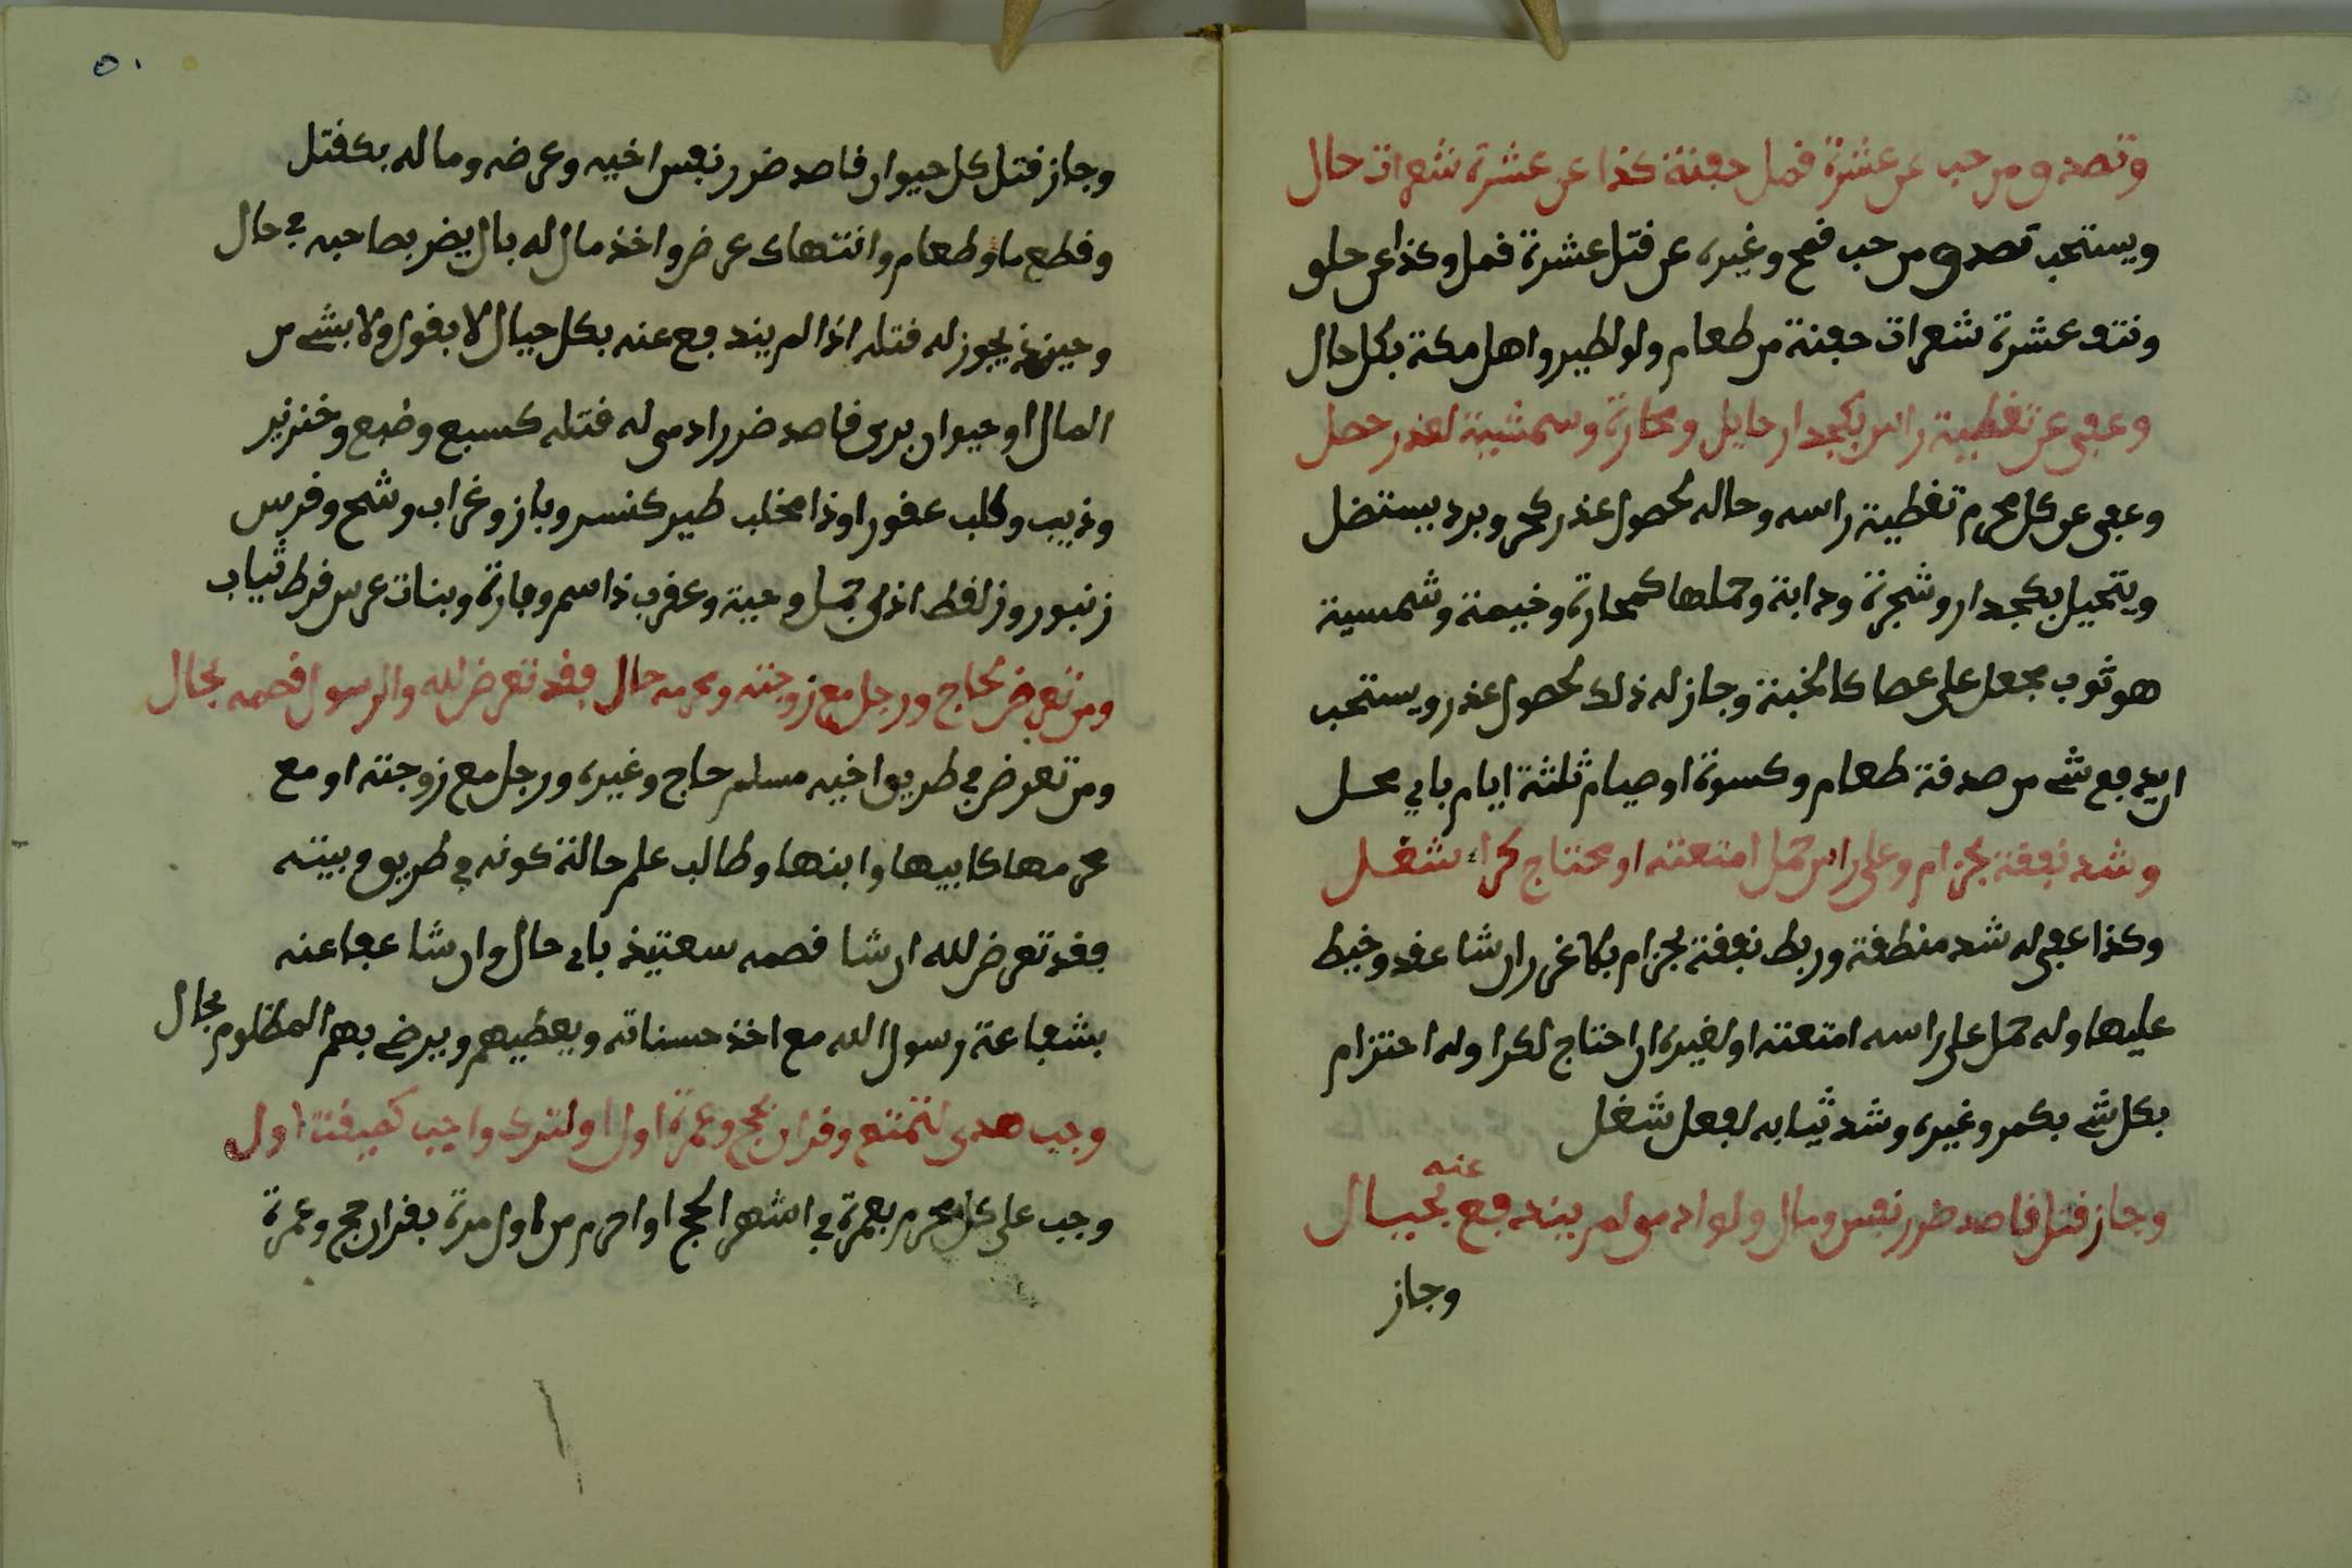 وتصدق من حب عن عشرة قمل حفنة كذا عن عشرة شعرات حال
ويستحب تصدق من حب قمح وغيره عن قتل عشرة قمل وكذا عن حلق
ونتف عشرة شعرات حفنة من طعام ولو لطير واهل مكة بكل حال
وعفى عن تغطية راس بكجدار حايل ومحارة وسمشية لعذر حصل
وعفى عن كل محرم تغطية راسه وحاله لحصول عذر كحر وبرد بيستضل
ويتحيل بكجدار وشجرة ودابة وحملها كمحارة وخيمة وشمسية
هو ثوب يجعل على عصا كالخبنة وجاز له ذلك لحصول عذر ويستحب
ان يدفع شي من صدقة طعام وكسوة او صيام ثلثة ايام باي محل
وشد نفقة بحزام وعلى راس حمل امتعته او محتاج كراء شغل
وكذا عفى له شد منطقة وربط نفقة بحزام بكاغر ان شا عقد وخيط
عليها وله حمل على راسه امتعته او لغيره ان احتاج لكرا وله احتزام
بكل شي بكمر وغيره وشد ثيابه لفعل شغل
وجاز قتل قاصد ضرر نفس ومال ولو ادمى لم يندفع عنه بحيال
وجاز
٥١
وجاز قتل كل حيوان قاصد ضرر نفس اخيه وعرضه وماله بكقتل
وقطع ماء وطعام وانتهاك عرض واخذ مال له بال يضر بصاحبه في حال
وحينئذ يجوز له قتله اذا لم يندفع عنه بكل حيال لا بقول ولا بشي من
المال او حيوان برى قاصد ضرر ادمى له قتله كسبع وضبع وخنزير
وذيب وكلب عقور او ذا مخلب طير كنسر وباز وغراب وشح وفرس
زنبور وزلقط اذى بحمل وحية وعقرب ذا سم وفارة وبنات عرس قرط ثياب
ومن تعرض لحاج ورجل مع زوجته ومحرمه حال فقد تعرض لله والرسول قصمه بحال
ومن تعرض في طريق اخيه مسلم حاج وغيره ورجل مع زوجته او مع
محرمها كابيها وابنها وطالب علم حالة كونه في طريق وبيته
فقد تعرض لله ان شا قصمه سعتيذ باى حال وان شا عفا عنه
بشفاعة رسول الله مع اخذ حسناته ويعطيهم ويرضى بهم المظلوم بحال
وجب هدى لتمتع وقران بحج وعمرة اول او لترك واجب كميقت اول
وجب على كل محرم بعمرة في اشهر الحج او احرم من اول مرة بقران حج وعمرة